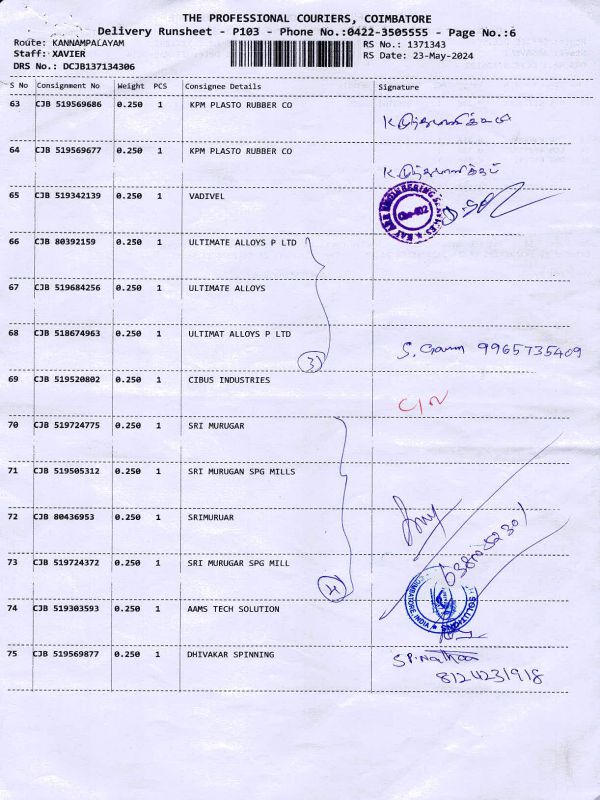 THE PROFESSIONAL COURIERS, COIMBATORE
Delivery Runsheet - P103 - Phone No.:0422-3505555 - Page No.:6
Route: KANNAMPALAYAM
Staff: XAVIER
DRS No.: DCJB137134306
RS No.: 1371343
RS Date: 23-May-2024
S No Consignment No Weight PCS Consignee Details Signature
63 CJB 519569686 0.250 1 KPM PLASTO RUBBER CO
64 CJB 519569677 0.250 1 KPM PLASTO RUBBER CO
65 CJB 519342139 0.250 1 VADIVEL
66 CJB 80392159 0.250 1 ULTIMATE ALLOYS P LTD
67 CJB 519684256 0.250 1 ULTIMATE ALLOYS
68 CJB 518674963 0.250 1 ULTIMAT ALLOYS P LTD
3 S. 9965735409
69 CJB 519520802 0.250 1 CIBUS INDUSTRIES
70 CJB 519724775 0.250 1 SRI MURUGAR
71 CJB 519505312 0.250 1 SRI MURUGAN SPG MILLS
72 CJB 80436953 0.250 1 SRIMURUAR
73 CJB 519724372 0.250 1 SRI MURUGAR SPG MILL
4
74 CJB 519303593 0.250 1 AAMS TECH SOLUTION
COIMBATORE, INDIA
75 CJB 519569877 0.250 1 DHIVAKAR SPINNING
8124231918